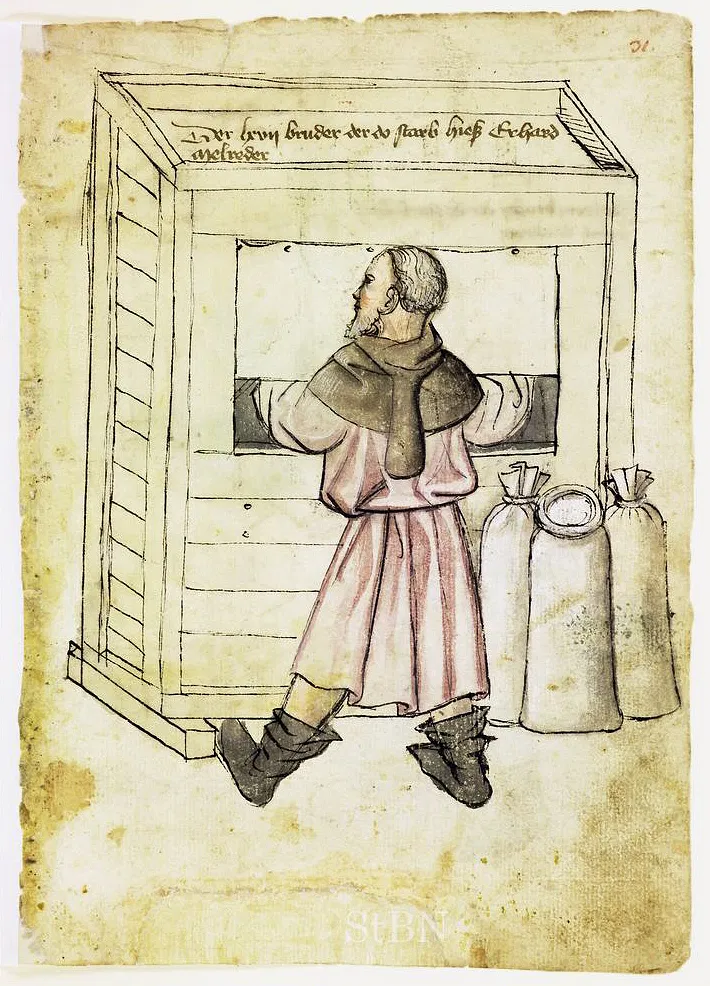 31.
Der lxvij bruder der do starb hieß Erhard
Melreder
StBN